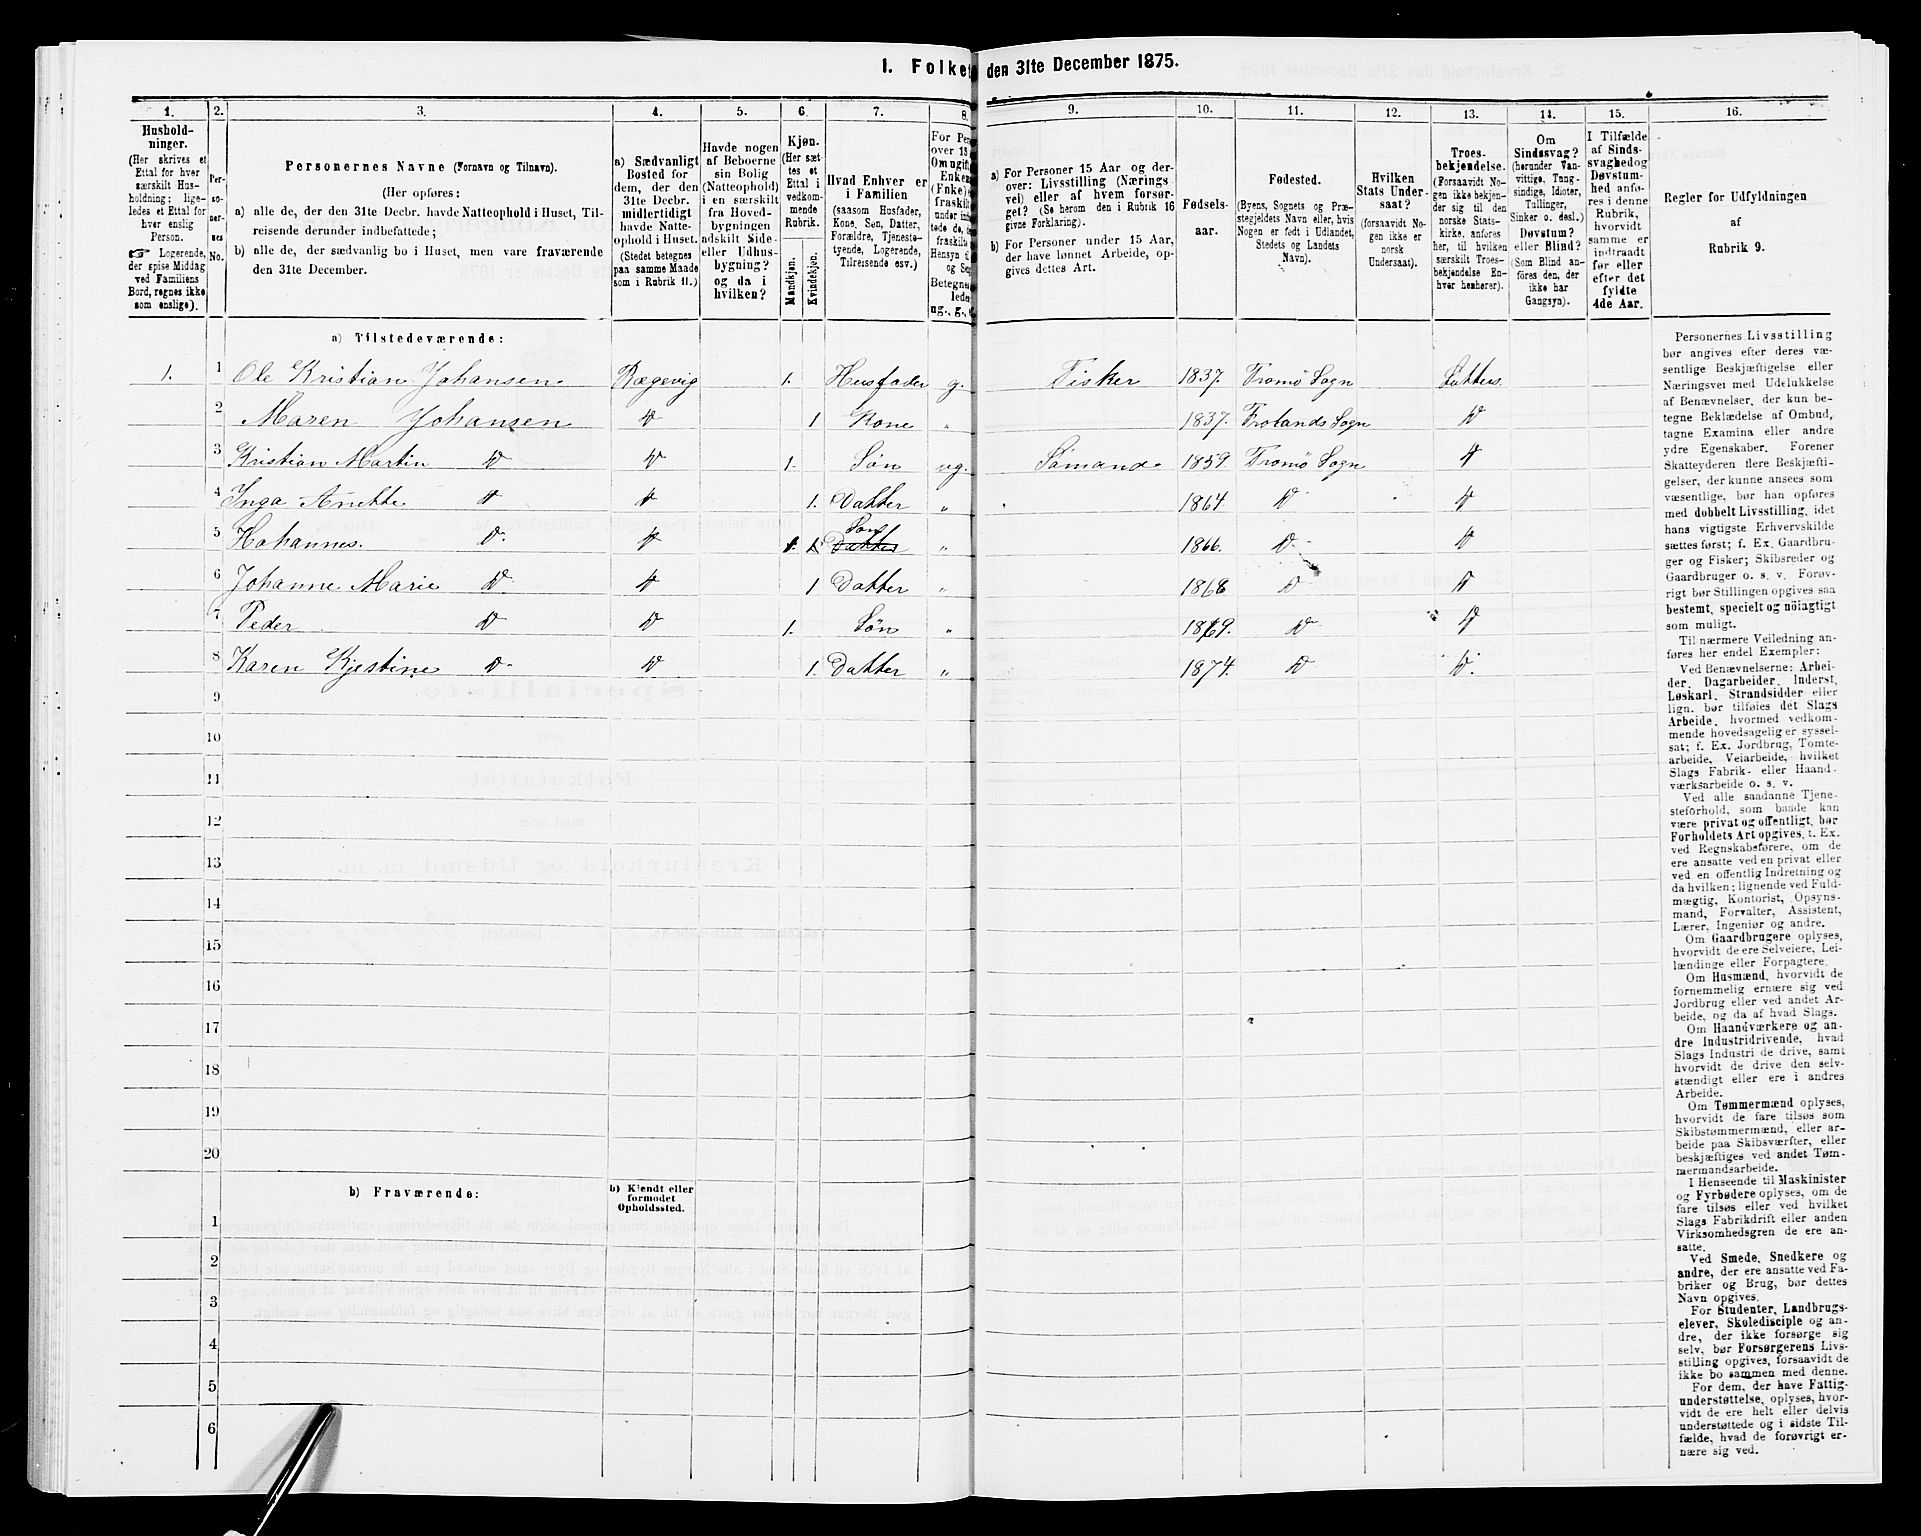 1. Folket den 31te December 1875.
1. 2. 3. 4. 5. 6. 7. 8. 9. 10. 11. 12. 13. 14. 15. 16.
Hushold-
ninger.
(Her skrives et
Ettal for hver
særskilt Hus-
holdning; lige-
ledes et Ettal for
hver enslig
Person.
☞ Logerende,
der spise Middag
ved Familiens
Bord, regnes ikke
som enslige).
Per-
so-
ner-
nes
No.
Personernes Navne (Fornavn og Tilnavn).
(Her opføres:
a) alle de, der den 31te Decbr. havde Natteophold i Huset, Til-
reisende derunder indbefattede;
b) alle de, der sædvanlig bo i Huset, men vare fraværende
den 31te December.
a) Sædvanligt
Bosted for
dem, der den
31te Decbr.
midlertidigt
havde Natte-
ophold i Huset.
(Stedet betegnes
paa samme Maade
som i Rubrik 11.)
Havde nogen
af Beboerne
sin Bolig
(Natteophold)
i en særskilt
fra Hoved-
bygningen
adskilt Side-
eller Udhus-
bygning?
og da i
hvilken?
Kjøn.
(Her sæt-
tes et
Ettal i
vedkom-
mende
Rubrik.
Mandkjøn.
Kvindekjøn.
Hvad Enhver er
i Familien
(saasom Husfader,
Kone, Søn, Datter,
Forældre, Tjeneste-
tyende, Logerende,
Tilreisende osv.)
For Per
over 15
Om ugift
Enken
(Fnke)
fraskilt
a) For Personer 15 Aar og der-
over: Livsstilling (Nærings-
vei) eller af hvem forsør-
get? (Se herom den i Rubrik 16
givne Forklaring).
b) For Personer under 15 Aar,
der have lønnet Arbeide, op-
gives dettes Art.
Fødsels-
aar.
Fødested.
(Byens, Sognets og Præ-
stegjeldets Navn eller, hvis
Nogen er født i Udlandet,
Stedets og Landets
Navn).
Hvilken
Stats Under-
saat?
(forsaavidt No-
gen ikke er
norsk
Undersaat).
Troes-
bekjendelse.
(Forsaavidt No-
gen ikke bekjen-
der sig til den
norske Stats-
kirke, anføres
her, til hvilken
særskilt Troes-
bekjendelse En-
hver henhører).
Om
Sindssvag?
(herunder Van-
vittige, Tung-
sindige, Idioter,
Tullinger,
Sinker o. desl.)
Døvstum?
eller Blind?
(Som Blind an-
føres den, der
ikke har
Gangsyn).
I Tilfælde
af Sinds-
svaghed og
Døvstum-
hed anfø-
res i denne
Rubrik,
hvorvidt
samme er
indtraadt
før eller
efter det
fyldte
4de Aar.
Regler for Udfyldningen
af
Rubrik 9.
a) Tilstedeværende:
1. 1 Ole Kristian Johansen Rægevig 1. Husfader g. Fisker 1837. Tromø Sogn Luthers
2 Maren Johansen D 1 Kone " 1837. Frolands Sogn D
3 Kristian Martin D D 1. Søn ug. Sømand 1859 Tromø Sogn D
4 Inga Anette D D 1. Datter " 1864. D D
5 Hohannes. D D 1. 1. Søn Datter " 1866. D D
6 Johanne Marie D. D 1 Datter " 1868 D D
7 Peder D D 1. Søn " 1869. D D
8 Karen Kjestine D D 1. Datter " 1874. D D
9
10
11
12
13
14
15
16
17
18
19
20
b) Fraværende:
b) Kjendt eller
formodet
Opholdssted.
1
2
3
4
5
6
Personernes Livsstilling
bør angives efter deres væ-
sentlige Beskjæftigelse eller
Næringsvei med Udelukkelse
af Benævnelser, der kun be-
tegne Beklædelse af Ombud,
tagne Examina eller andre
ydre Egenskaber. Forener
Skatteyderen flere Beskjæfti-
gelser, der kunne ansees som
væsentlige, bør han opføres
med dobbelt Livsstilling, idet
hans vigtigste Erhvervskilde
sættes først; f. Ex. Gaardbru-
ger og Fisker; Skibsreder og
Gaardbruger o. s. v. Forøv-
rigt bør Stillingen opgives saa
bestemt, specielt og nöiagtigt
som muligt.
Til nærmere Veiledning an-
føres her endel Exempler:
Ved Benævnelserne: Arbei-
der, Dagarbeider, Inderst,
Løskarl, Strandsidder eller
lign. bør tilføies det Slags
Arbeide, hvormed vedkom-
mende hovedsagelig er syssel-
sat; f. Ex. Jordbrug, Tomte-
arbeide, Veiarbeide, hvilket
Slags Fabrik- eller Haand-
værksarbeide o. s. v.
Ved alle saadanne Tjene-
steforhold, som baade kan
være privat og offentligt, bør
Forholdets Art opgives, t. Ex.
ved Regnskabsførere, om de
ere ansatte ved en privat eller
ved en offentlig Indretning og
da hvilken; lignende ved Fuld-
mægtig, Kontorist, Opsyns-
mand, Forvalter, Assistent,
Lærer, Ingeniør og andre.
Om Gaardbrugere oplyses,
hvorvidt de ere Selveiere, Lei-
lændinge eller Forpagtere.
Om Husmænd, hvorvidt de
fornemmelig ernære sig ved
Jordbrug eller ved andet Ar-
beide, og da af hvad Slags.
Om Haandværkere og an-
dre Industridrivende, hvad
Slags Industri de drive, samt
hvorvidt de drive den selv-
stændigt eller ere i andres
Arbeide.
Om Tømmermænd oplyses,
hvorvidt de fare tilsøs som
Skibstømmermænd, eller ar-
beide paa Skibsværfter, eller
beskjæftiges ved andet Tøm-
mermandsarbeide.
I Henseende til Maskinister
og Fyrbødere oplyses, om de
fare tilsøs eller ved hvilket
Slags Fabrikdrift eller anden
Virksomhedsgren de ere an-
satte.
Ved Smede, Snedkere og
andre, der ere ansatte ved Fa-
briker og Brug, bør dettes
Navn opgives.
For Studenter, Landbrugs-
elever, Skoledisciple og an-
dre, der ikke forsørge sig
selv, bør Forsørgerens Livs-
stilling opgives, forsaavidt de
ikke bo sammen med denne.
For dem, der have Fattig-
understøttelse, oplyses, hvor-
vidt de ere helt eller delvis
understøttede og i sidste Til-
fælde, hvad de forøvrigt er-
nære sig ved.